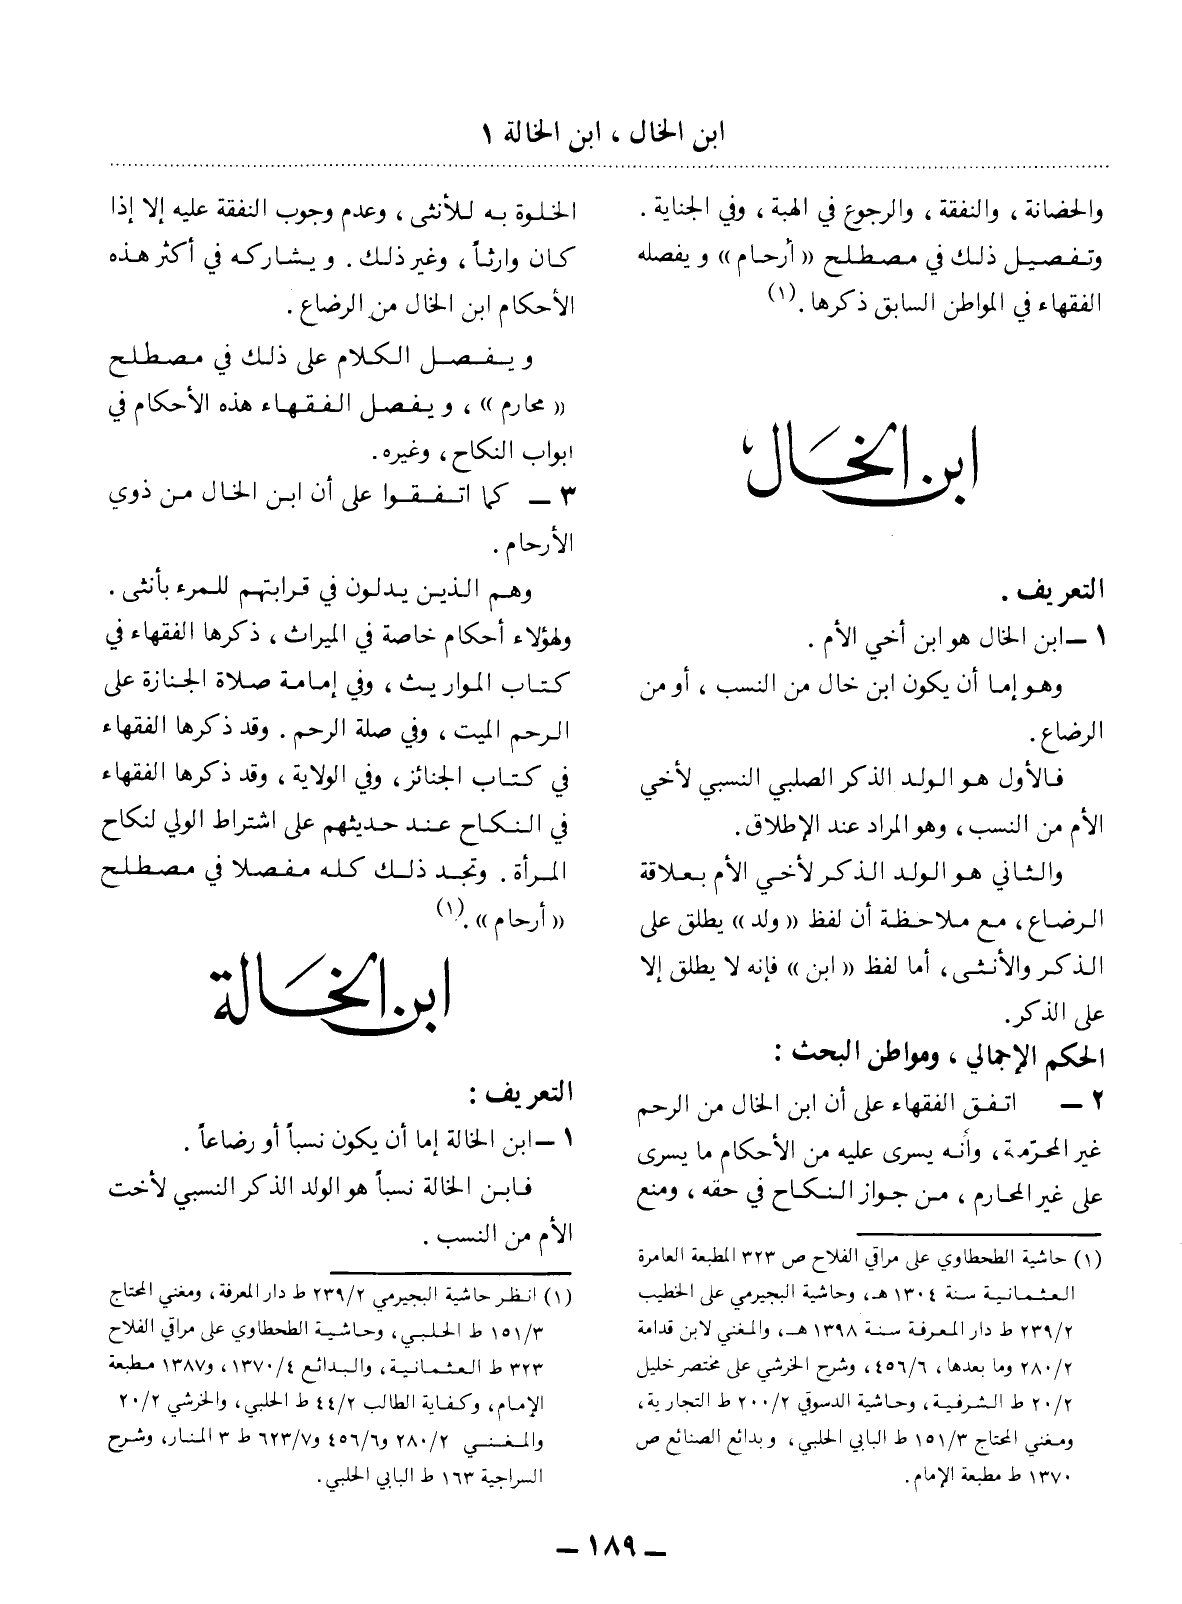 ابن الخال ، ابن الخالة ١
والحضانة ، والنفقة ، والرجوع في الهبة ، وفي الجناية .
وتفصيل ذلك في مصطلح « أرحام » ويفصله
الفقهاء في المواطن السابق ذكرها . (١)
ابن الخال
التعريف .
١ – ابن الخال هو ابن أخي الأم .
وهو إما أن يكون ابن خال من النسب ، أو من
الرضاع .
فالأول هو الولد الذكر الصلبي النسبي لأخي
الأم من النسب ، وهو المراد عند الإطلاق .
والثاني هو الولد الذكر لأخي الأم بعلاقة
الرضاع ، مع ملاحظة أن لفظ « ولد » يطلق على
الذكر والأنثى ، أما لفظ « ابن » فإنه لا يطلق إلا
على الذكر .
الحكم الإجمالي ، ومواطن البحث :
٢ – اتفق الفقهاء على أن ابن الخال من الرحم
غير المحرّمة ، وأنه يسرى عليه من الأحكام ما يسرى
على غير المحارم ، من جواز النكاح في حقه ، ومنع
(١) حاشية الطحطاوي على مراقي الفلاح ص ٣٢٣ المطبعة العامرة
العثمانية سنة ١٣٠٤ هـ ، وحاشية البجيرمي على الخطيب
٢٣٩/٢ ط دار المعرفة سنة ١٣٩٨ هـ ، والمغني لابن قدامة
٢٨٠/٢ وما بعدها ، ٤٥٦/٦ ، وشرح الخرشي على مختصر خليل
٢٠/٢ ط الشرفية ، وحاشية الدسوقي ٢٠٠/٢ ط التجارية ،
ومغني المحتاج ١٥١/٣ ط البابي الحلبي ، وبدائع الصنائع ص
١٣٧٠ ط مطبعة الإمام .
الخلوة به للأنثى ، وعدم وجوب النفقة عليه إلا إذا
كان وارثاً ، وغير ذلك . ويشاركه في أكثر هذه
الأحكام ابن الخال من الرضاع .
ويفصل الكلام على ذلك في مصطلح
« محارم » ، ويفصل الفقهاء هذه الأحكام في
ابواب النكاح ، وغيره .
٣ – كما اتفقوا على أن ابن الخال من ذوي
الأرحام .
وهم الذين يدلون في قرابتهم للمرء بأنثى .
ولهؤلاء أحكام خاصة في الميراث ، ذكرها الفقهاء في
كتاب المواريث ، وفي إمامة صلاة الجنازة على
الرحم الميت ، وفي صلة الرحم . وقد ذكرها الفقهاء
في كتاب الجنائز ، وفي الولاية ، وقد ذكرها الفقهاء
في النكاح عند حديثهم على اشتراط الولي لنكاح
المرأة . وتجد ذلك كله مفصلا في مصطلح
« أرحام » . (١)
ابن الخالة
التعريف :
١ – ابن الخالة إما أن يكون نسباً أو رضاعاً .
فابن الخالة نسباً هو الولد الذكر النسبي لأخت
الأم من النسب .
(١) انظر حاشية البجيرمي ٢٣٩/٢ ط دار المعرفة ، ومغني المحتاج
١٥١/٣ ط الحلبي ، وحاشية الطحطاوي على مراقي الفلاح
٣٢٣ ط العثمانية ، والبدائع ١٣٧٠/٤ ، و١٣٨٧ مطبعة
الإمام ، وكفاية الطالب ٤٤/٢ ط الحلبي ، والخرشي ٢٠/٢
والمغني ٢٨٠/٢ و٤٥٦/٦ و٦٢٣/٧ ط ٣ المنار ، وشرح
السراجية ١٦٣ ط البابي الحلبي .
– ١٨٩ –